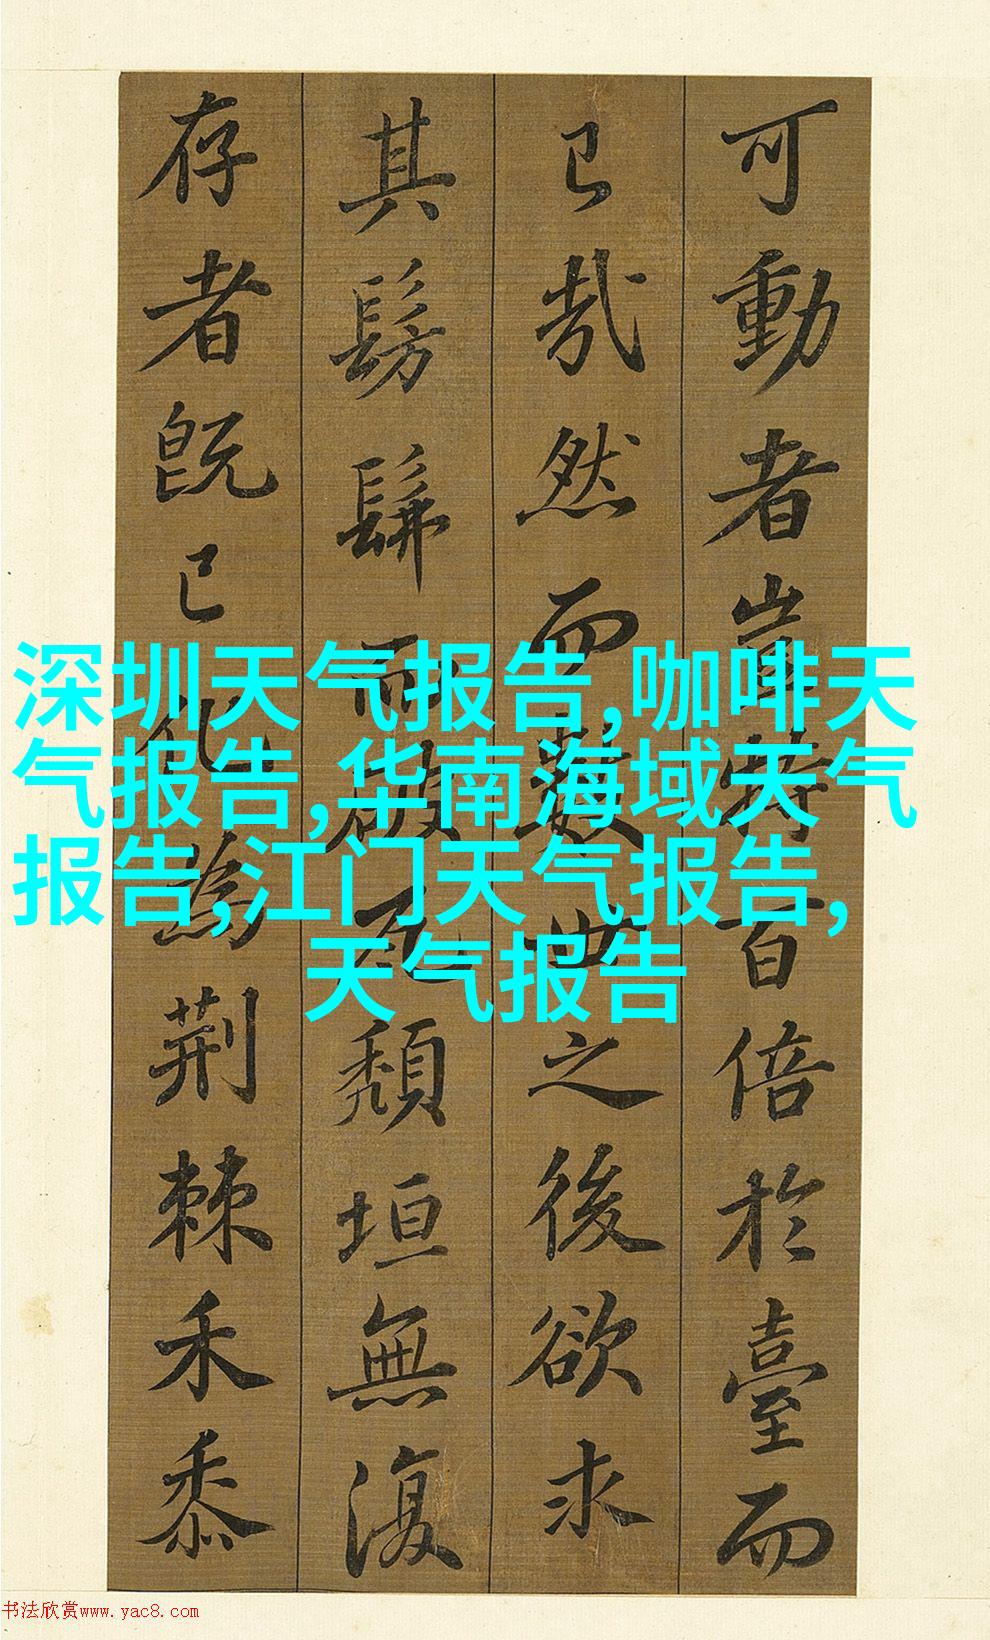 可動者豈特百倍於臺而
已哉然而數世之後欲求
其髣髴而破瓦頹垣無復
存者既已化為荊棘禾黍
深圳天气报告,咖啡天
气报告,华南海域天气
报告,江门天气报告,
天气报告
书法欣赏www.yac8.com